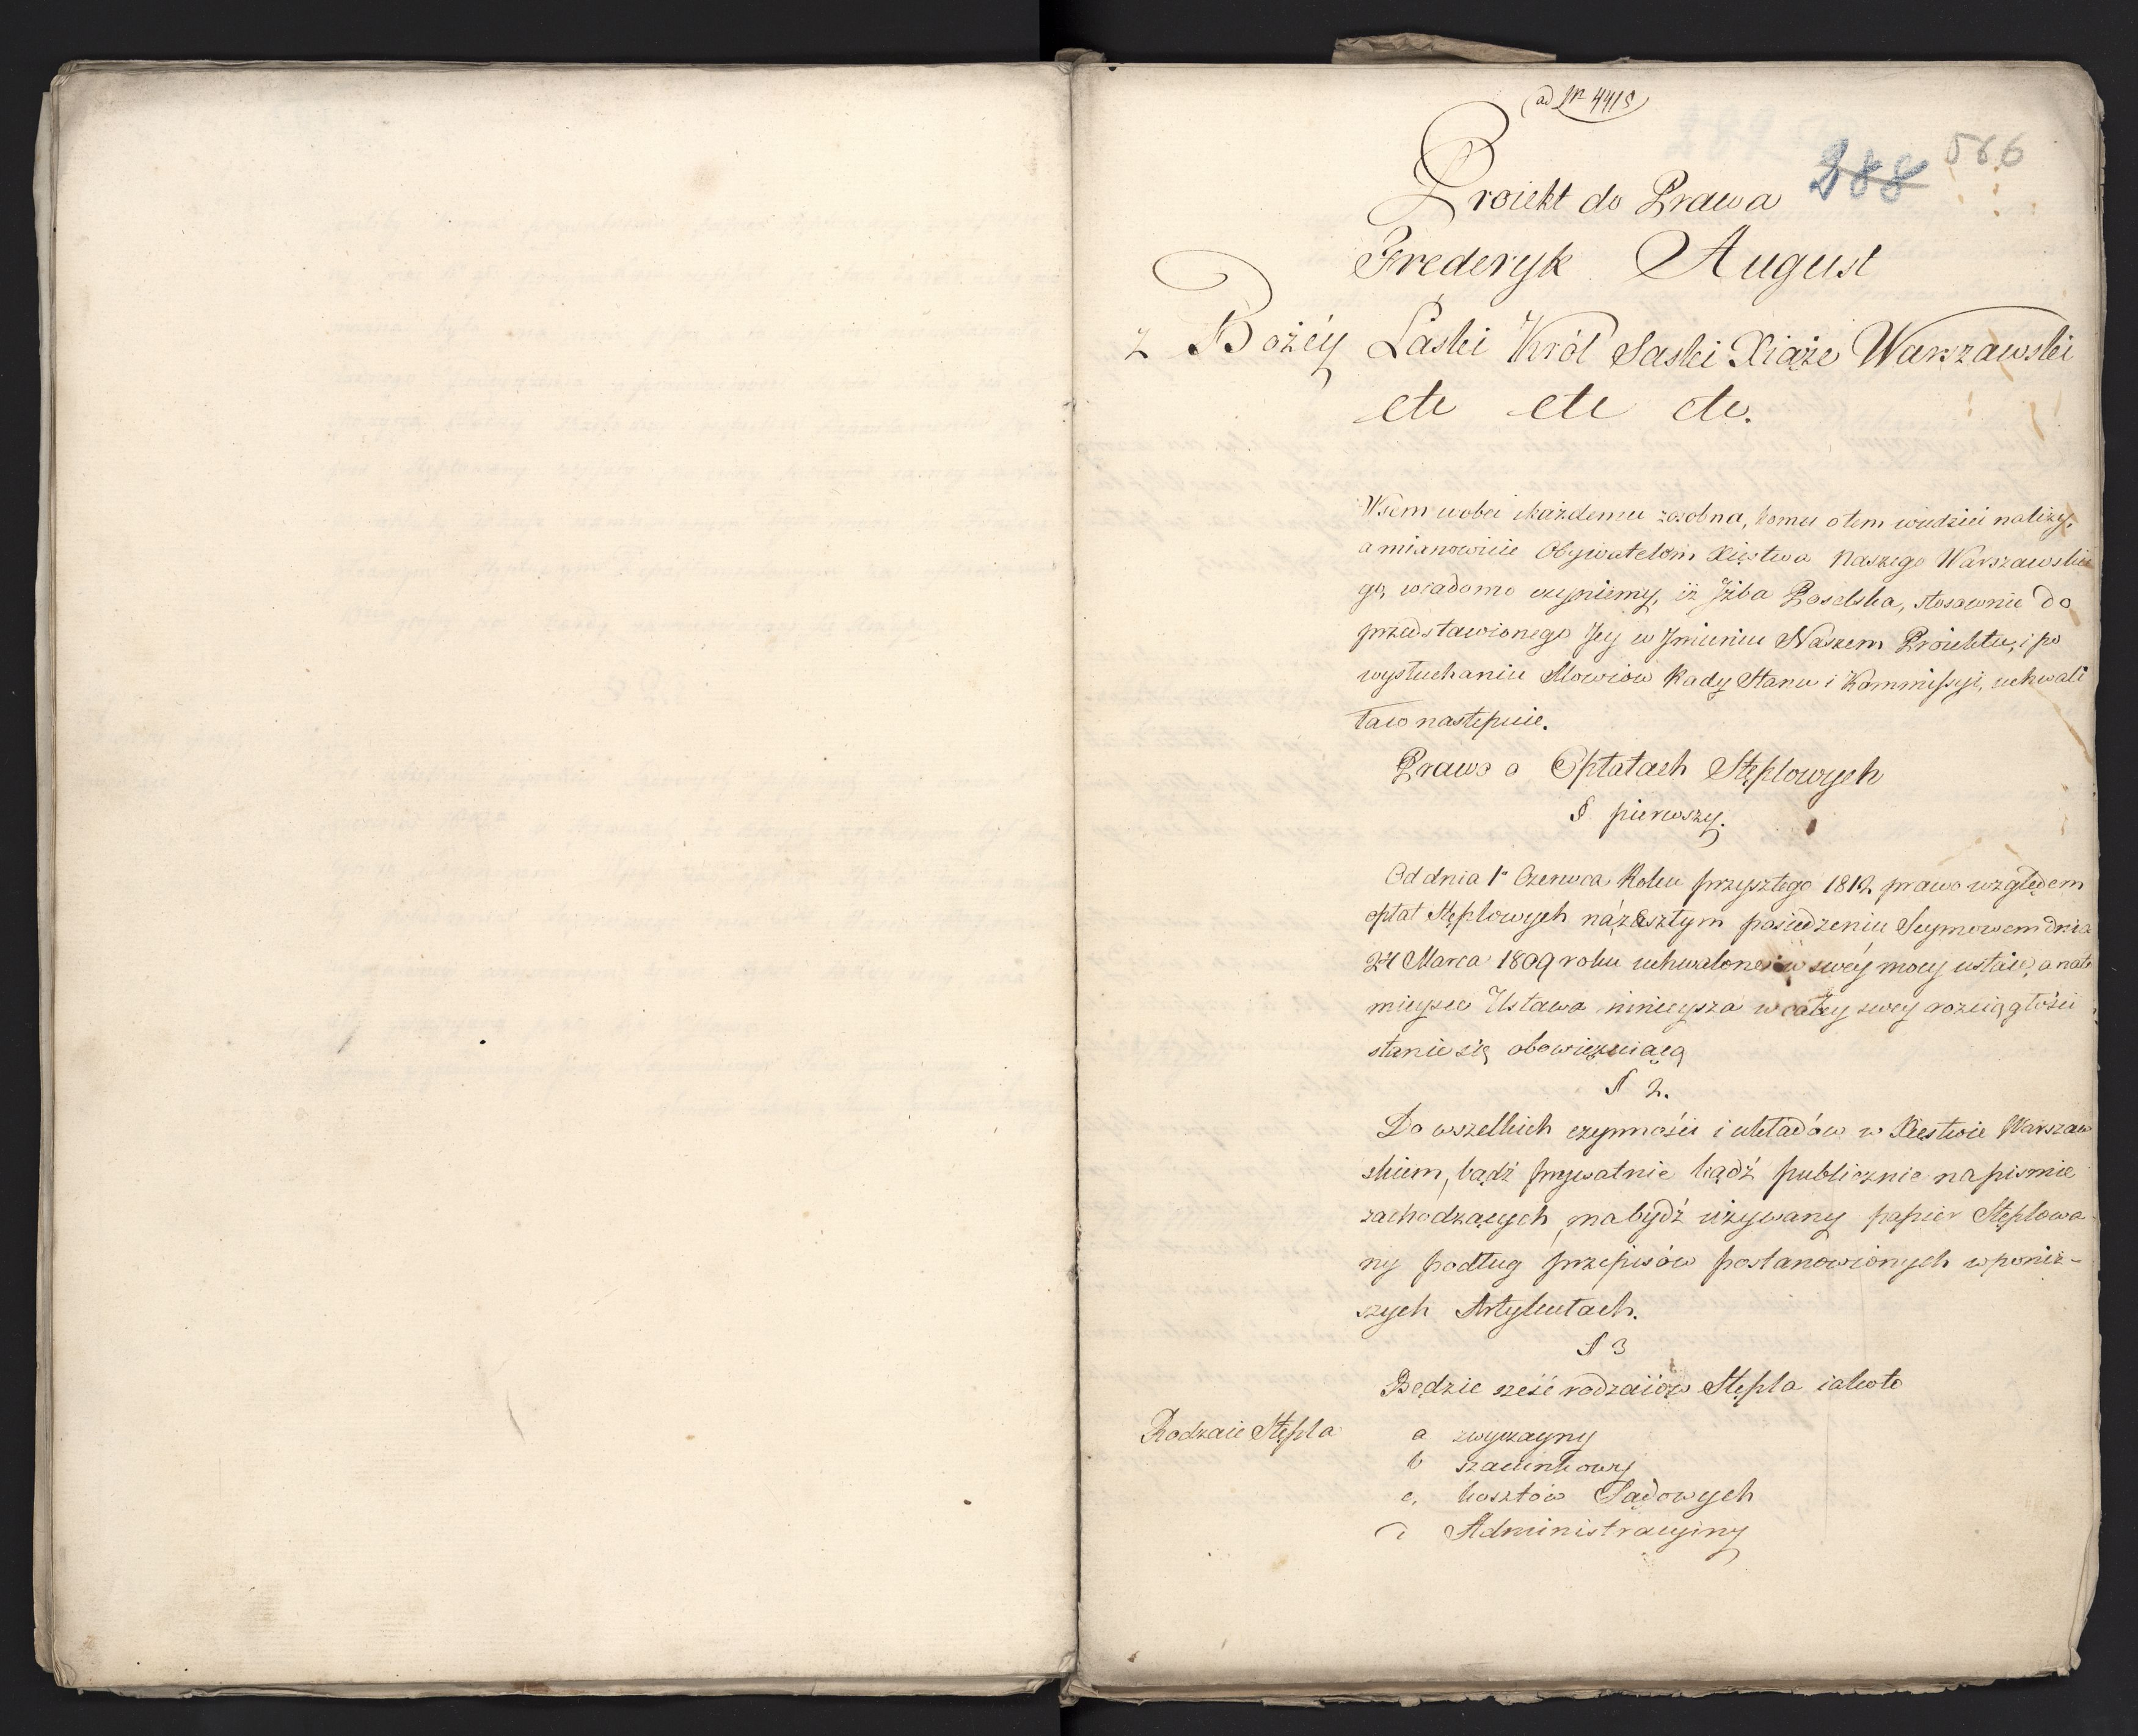 ad Nr 4418
566
288
Proiekt do Prawa
Frederyk August
z Bożéy Łaski Król Saski Xiąże Warszawski
etc etc etc.
Wszem wobec i każdemu zosobna, komu o tem wiedzieć należy,
a mianowicie Obywatelom Xięstwa Naszego Warszawskie
go, wiadomo czyniemy, iż Jzba Poselska, stosownie do
przedstawionego Jey w Jmieniu Naszem Proiektu, i po
wysłuchaniu Mowców Rady Stanu i Kommissyi, uchwali
ła co następuie.
Prawo o Opłatach Stęplowych
§ pierwszy.
Od dnia 1o Czerwca Roku przyszłego 1812. prawo względem
opłat Stęplowych na zeszłym posiedzeniu Seymowem dnia
24 Marca 1809 roku uchwalone w swéy mocy ustaie, a nato
mieysce Ustawa ninieysza w całey swey rozciągłości
stanie się obowięzuiącą
§ 2.
Do wszelkich czynności i układów w Xięstwie Warszaw
skiem, bądź prywatnie bądź publicznie na pismie
zachodzących, ma bydź używany papier Stęplowa
ny podług przepisów postanowionych w poniż-
szych Artykułach.
§ 3
Będzie sześć rodzaiów Stępla iakoto
Rodzaie Stępla
a zwyczayny
b szacunkowy
c, kosztów Sądowych
d Administracyiny